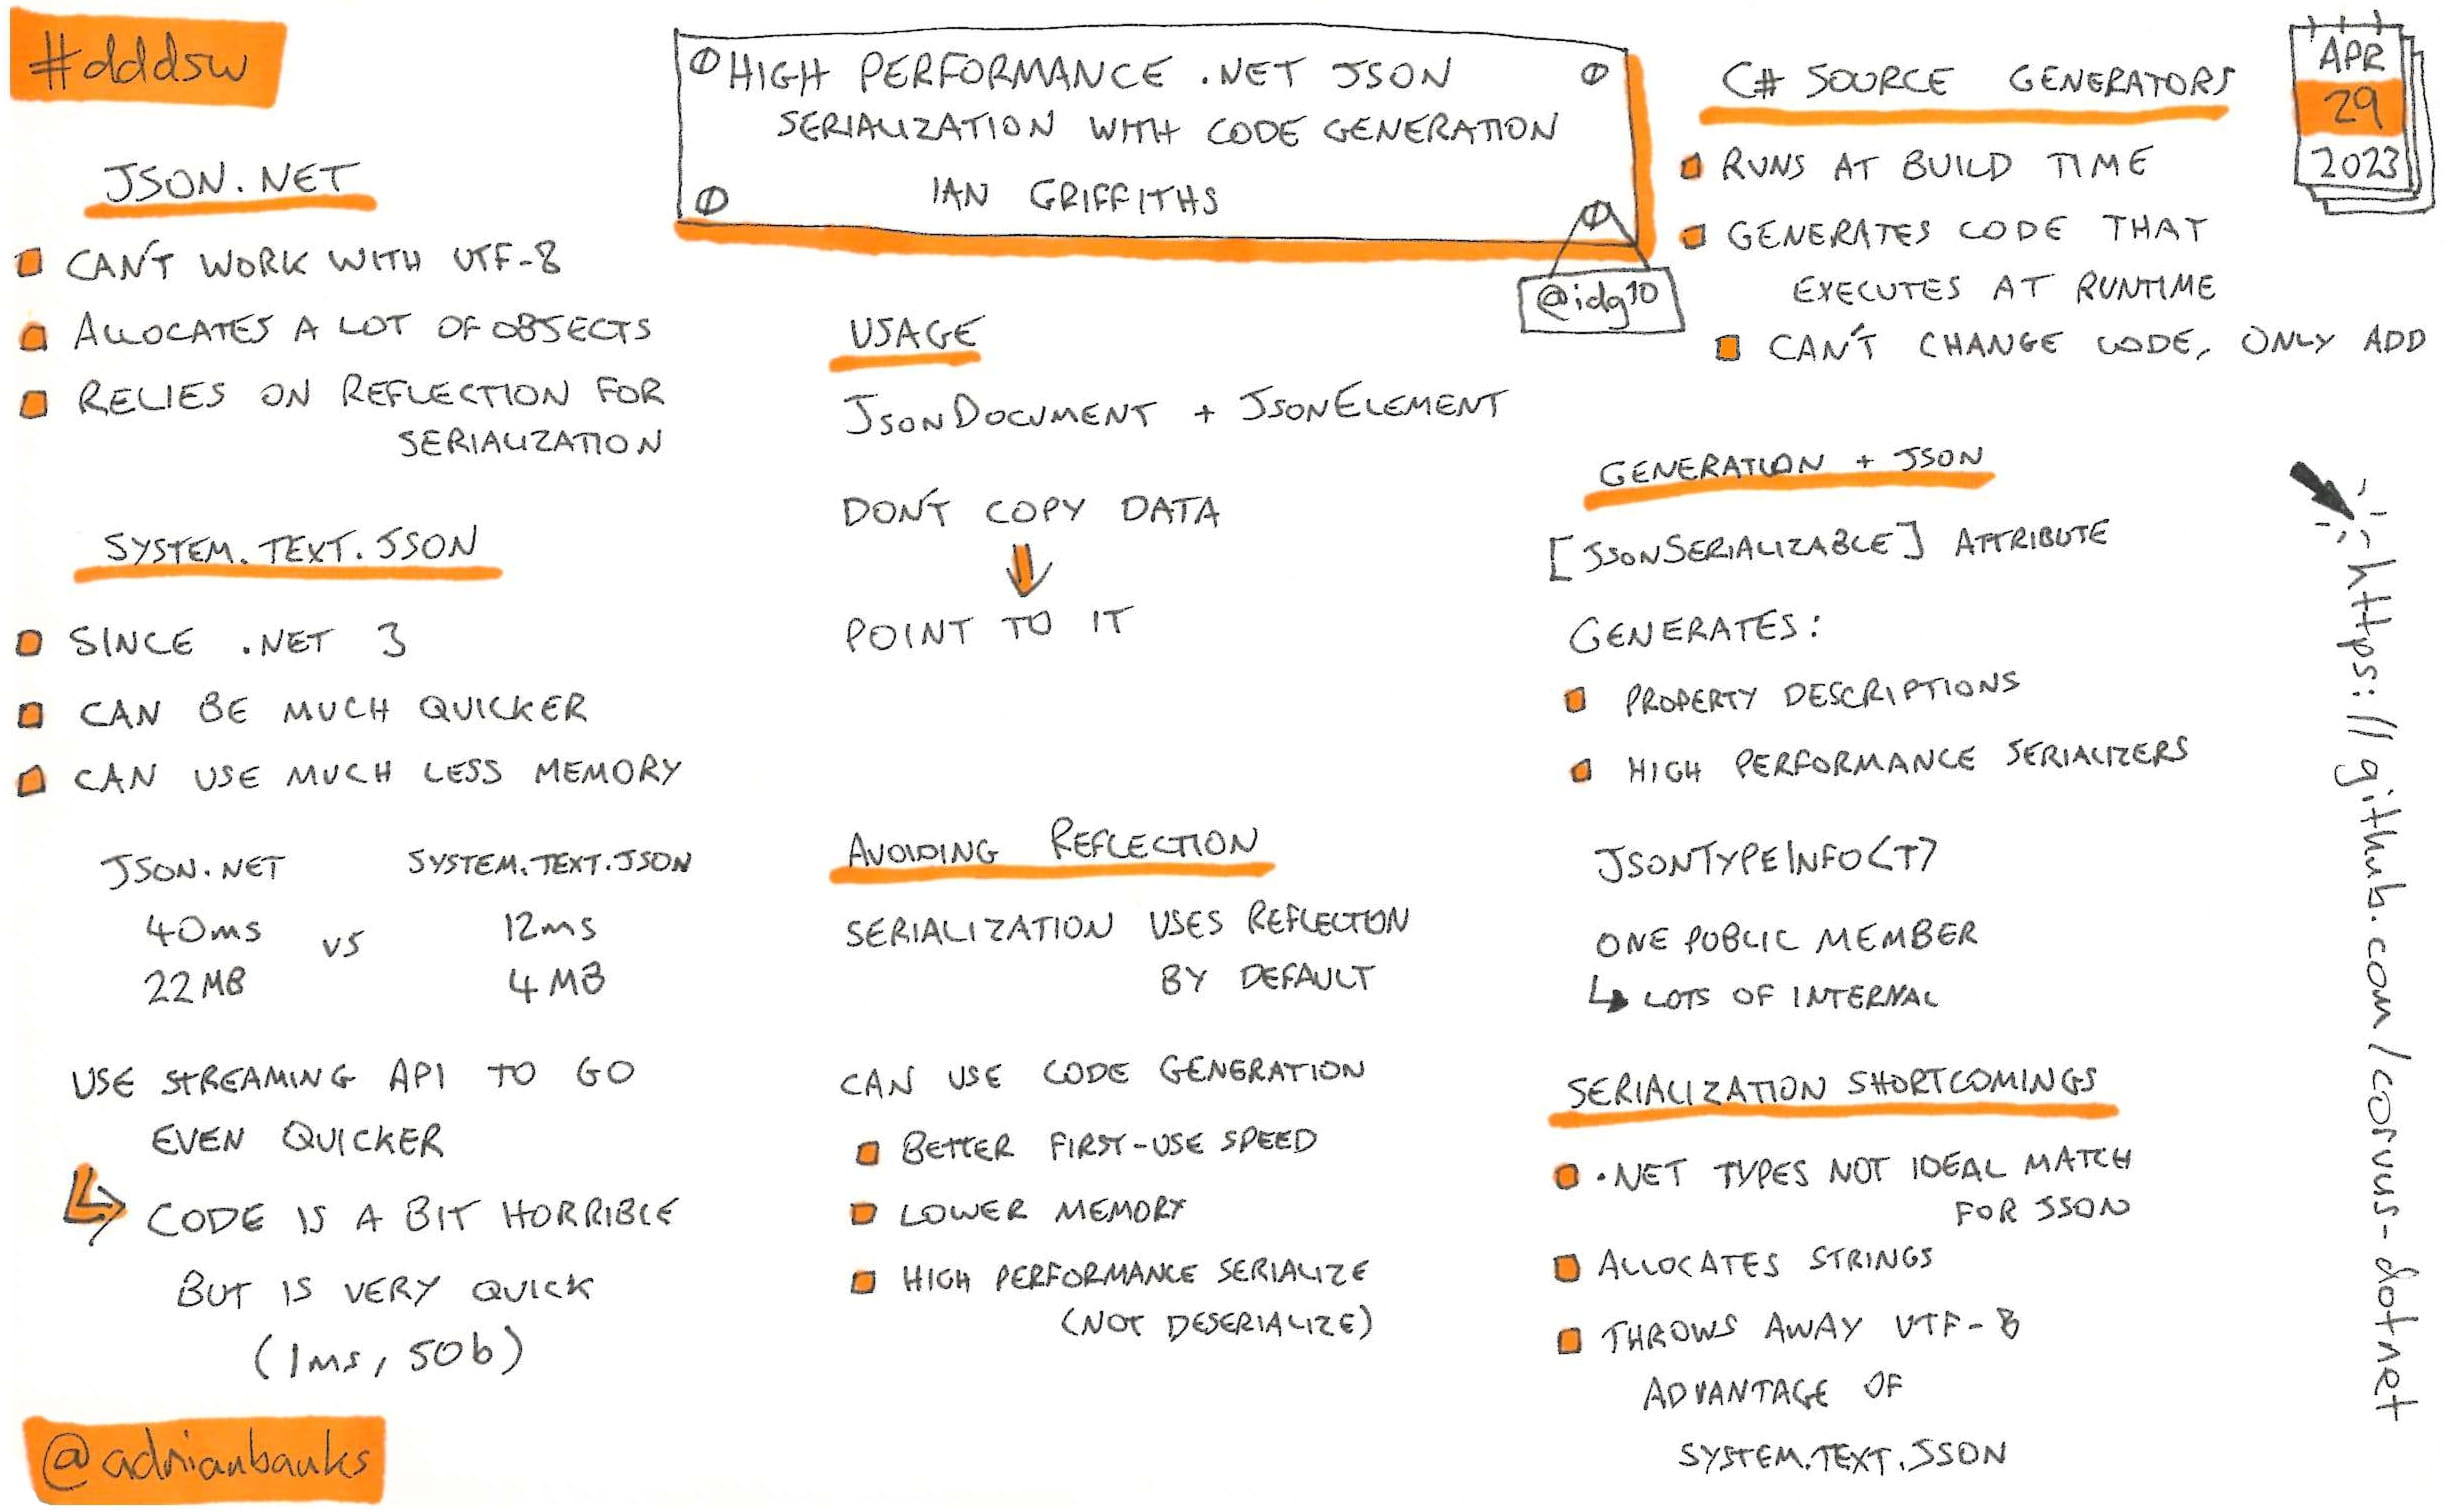 #dddsw
HIGH PERFORMANCE .NET JSON
SERIALIZATION WITH CODE GENERATION
IAN GRIFFITHS
@idg10
APR
29
2023
JSON.NET
CAN'T WORK WITH UTF-8
ALLOCATES A LOT OF OBJECTS
RELIES ON REFLECTION FOR
SERIALIZATION
SYSTEM.TEXT.JSON
SINCE .NET 3
CAN BE MUCH QUICKER
CAN USE MUCH LESS MEMORY
JSON.NET SYSTEM.TEXT.JSON
40ms vs 12ms
22MB 4MB
USE STREAMING API TO GO
EVEN QUICKER
CODE IS A BIT HORRIBLE
BUT IS VERY QUICK
(1ms, 50b)
@adrianbanks
USAGE
JSONDOCUMENT + JSONELEMENT
DON'T COPY DATA
POINT TO IT
AVOIDING REFLECTION
SERIALIZATION USES REFLECTION
BY DEFAULT
CAN USE CODE GENERATION
BETTER FIRST-USE SPEED
LOWER MEMORY
HIGH PERFORMANCE SERIALIZE
(NOT DESERIALIZE)
C# SOURCE GENERATORS
RUNS AT BUILD TIME
GENERATES CODE THAT
EXECUTES AT RUNTIME
CAN'T CHANGE CODE, ONLY ADD
GENERATION + JSON
[JSONSERIALIZABLE] ATTRIBUTE
GENERATES:
PROPERTY DESCRIPTIONS
HIGH PERFORMANCE SERIALIZERS
JSONTYPEINFO<T>
ONE PUBLIC MEMBER
LOTS OF INTERNAL
SERIALIZATION SHORTCOMINGS
.NET TYPES NOT IDEAL MATCH
FOR JSON
ALLOCATES STRINGS
THROWS AWAY UTF-8
ADVANTAGE OF
SYSTEM.TEXT.JSON
https://github.com/corvus-dotnet